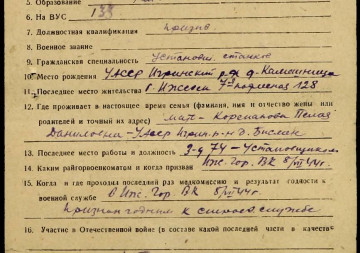 5. Образование
6. На ВУС 133
7. Должностная квалификация призыв
8. Военное звание
9. Гражданская специальность Установщ. станков
10. Место рождения УАССР Игринский р-д д.
11. Последнее место жительства г. Ижевск 7 подлесная 128
12. Где проживает в настоящее время семья (фамилия, имя и отчество жены или
родителей и точный их адрес) мать - Корепанова
Даниловна - УАССР Игрин. р-н д.
13. Последнее место работы и должность з-д 74 - Установщиком
14. Каким райгорвоенкоматом и когда призван Иж. Гор. ВК 8/VII 44г.
15. Когда и где проходил последний раз медкомиссию и результат годности к
военной службе в Иж. Гор. ВК 8/VII 44г.
признан годным к строев. службе
16. Участие в Отечественной войне (в составе какой последней части в качестве